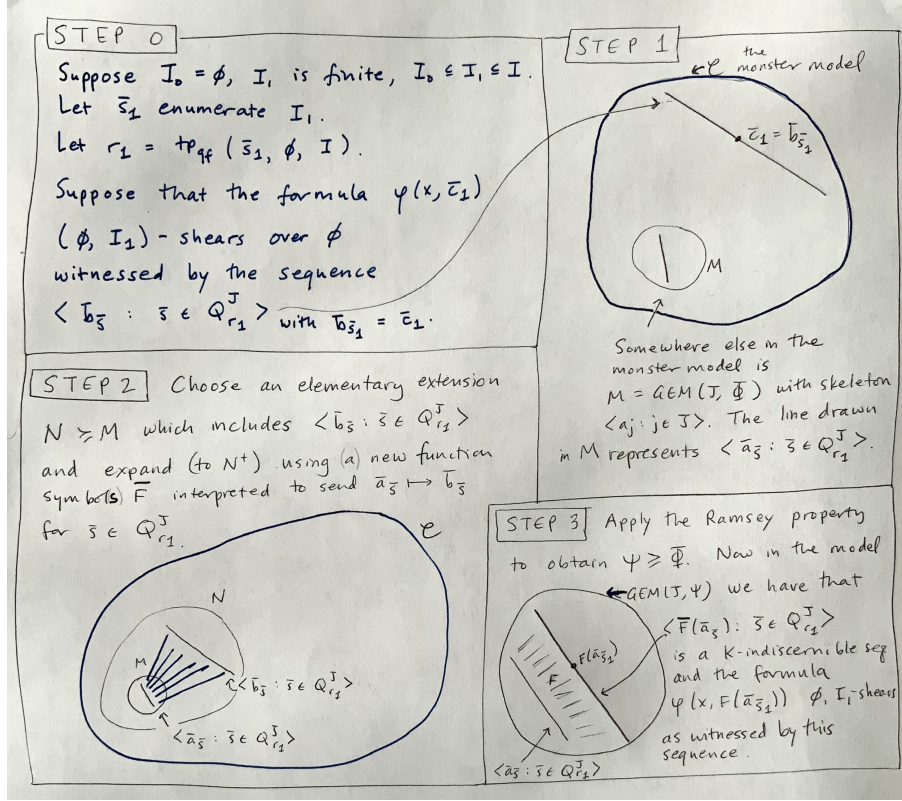 STEP 0
Suppose I₀ = ∅, I₁ is finite, I₀ ⊆ I₁ ⊆ I.
Let s̄₁ enumerate I₁.
Let r₁ = tp_qf (s̄₁, ∅, I).
Suppose that the formula φ(x, c̄₁)
(∅, I₁) - shears over ∅
witnessed by the sequence
< b̄_s̄ : s̄ ∈ Q^J_r₁ > with b̄_s̄₁ = c̄₁.
STEP 1
← 𝒞 the
monster model
c̄₁ = b̄_s̄₁
M
Somewhere else in the
monster model is
M = GEM(J, Φ) with skeleton
<aj : j ∈ J>. The line drawn
in M represents < ā_s̄ : s̄ ∈ Q^J_r₁ >.
STEP 2 Choose an elementary extension
N ≽ M which includes < b̄_s̄ : s̄ ∈ Q^J_r₁ >
and expand (to N⁺) using (a) new function
symbol(s) F̄ interpreted to send ā_s̄ ↦ b̄_s̄
for s̄ ∈ Q^J_r₁.
𝒞
N
M
< b̄_s̄ : s̄ ∈ Q^J_r₁ >
< ā_s̄ : s̄ ∈ Q^J_r₁ >
STEP 3 Apply the Ramsey property
to obtain Ψ ≥ Φ. Now in the model
← GEM(J, Ψ) we have that
< F̄(ā_s̄) : s̄ ∈ Q^J_r₁ >
is a K-indiscernible seq
and the formula
φ(x, F(ā_s̄₁)) ∅, I₁-shears
as witnessed by this
sequence.
F(ā_s̄₁)
F
< ā_s̄ : s̄ ∈ Q^J_r₁ >